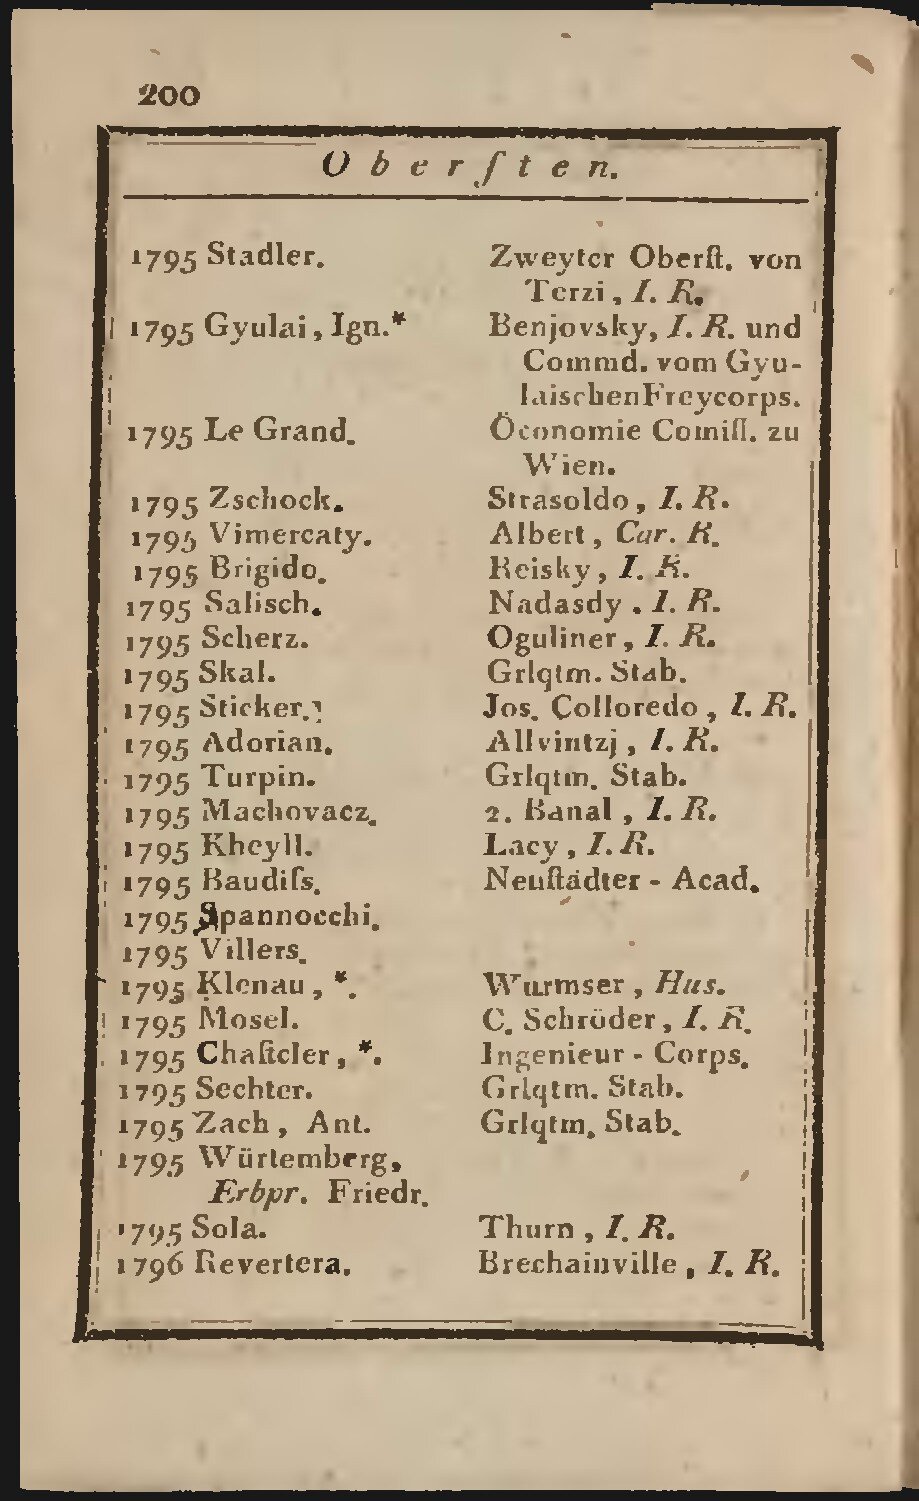 200
Oberſten.
1795 Stadler. Zweyter Oberſt. von
Terzi, I. R.
1795 Gyulai, Ign.* Benjovsky, I. R. und
Commd. vom Gyu-
laischenFreycorps.
1795 Le Grand. Öconomie Comiſſ. zu
Wien.
1795 Zschock. Strasoldo, I. R.
1795 Vimercaty. Albert, Car. R.
1795 Brigido. Reisky, I. R.
1795 Salisch. Nadasdy. I. R.
1795 Scherz. Oguliner, I. R.
1795 Skal. Grlqtm. Stab.
1795 Sticker. Jos. Colloredo, I. R.
1795 Adorian. Allvintzj, I. R.
1795 Turpin. Grlqtm. Stab.
1795 Machovacz. 2. Banal, I. R.
1795 Kheyll. Lacy, I. R.
1795 Baudiſs. Neuſtädter - Acad.
1795 Spannocchi.
1795 Villers.
1795 Klenau, *. Wurmser, Hus.
1795 Mosel. C. Schröder, I. R.
1795 Chaſteler, *. Ingenieur - Corps.
1795 Sechter. Grlqtm. Stab.
1795 Zach, Ant. Grlqtm. Stab.
1795 Würtemberg,
Erbpr. Friedr.
1795 Sola. Thurn, I. R.
1796 Revertera. Brechainville, I. R.